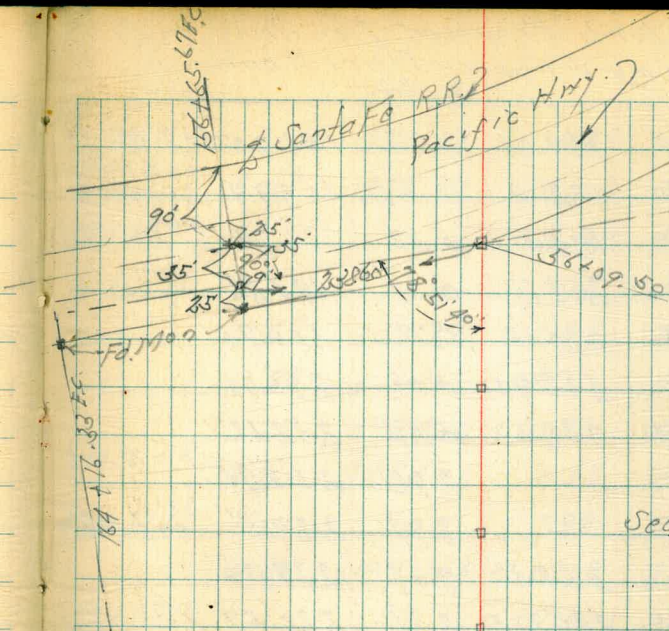 156+65.67 E.C.
℄ Santa Fe R.R.
Pacific Hwy.
90'
25'
35'
90°
35'
9'
25
238.60
78°51'40"
56+09.50
Fd. Mon
164+16.33 E.C.
Sec